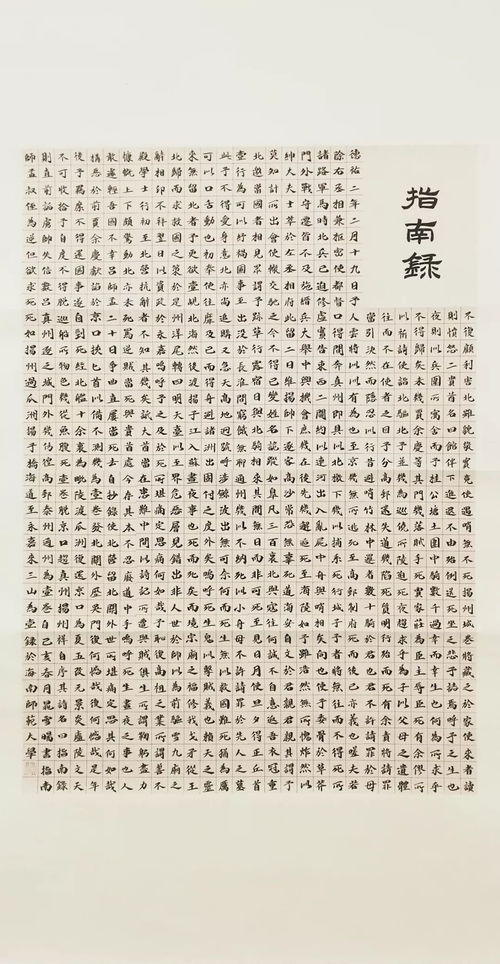 指南錄
德祐二年二月十九日予
除右丞相兼樞密使都督
諸路軍馬時北兵已迫修
門外戰守遷皆不及施縉
紳大夫士萃於左丞相府
莫知計所出會使轍交馳
北邀當國者相見眾謂予
壹行為可以紓禍國事至
此予不得愛身意北亦尚
可以口舌動也初奉使往
來無留北者予更欲壹覘
北歸而求救國之策於是
解相印不拜翌日以資政
殿學士行初至北營抗辭
慷慨上下頗驚動北亦未
敢遽輕吾國不幸呂師孟
構惡於前賈余慶獻諂於
後予羈縻不得還國事遂
不可收拾予自度不得脫
則直前詬虜帥失信數呂
師孟叔侄為逆但欲求死
不復顧利害北雖貌敬實
則憤怒二貴酋名曰館伴
夜則以兵圍所寓舍而予
不得歸矣未幾賈余慶等
以祈請使詣北驅北予並
往而不在使者之目予分
當引決然而隱忍以行昔
人云將以有為也至京口
得間奔真州即具以北虛
實告東西二閫約以連兵
大舉中興機會庶幾在此
留二日維揚帥下逐客之
令不得已變姓名詭蹤跡
草行露宿日與北騎相出
沒於長淮間窮餓無聊追
購又急天高地迥號呼靡
及已而得舟避渚洲出北
海然後渡揚子江入蘇州
洋展轉四明天臺以至於
永嘉嗚呼予之及於死者
不知其幾矣詆大酋當死
罵逆賊當死與貴酋處二
十日爭曲直屢當死去京
口挾匕首以備不測幾自
剄死經北艦十餘里為巡
船所物色幾從魚腹死真
州逐之城門外幾彷徨死
如揚州過瓜洲揚子橋竟
使遇哨無不死揚州城下
進退不由殆例送死坐桂
公塘土圍中騎數千過其
門幾落賊手死賈家莊幾
為巡徼所陵迫死夜趨高
郵迷失道幾陷死質明避
哨竹林中邏者數十騎幾
無所逃死至高郵制府檄
下幾以捕系死行城子河
出入亂屍中舟與哨相後
先幾邂逅死至海陵如高
沙常恐無辜死道海安如
皋凡三百里北與寇往來
其間無日而非可死至通
州幾以不納死以小舟涉
鯨波出無可奈何而死固
付之度外矣嗚呼死生晝
夜事也死而死矣而境界
危惡層見錯出非人世所
堪痛定思痛痛何如哉予
在患難中間以詩記所遭
今存其本不忍廢道中手
自抄錄使北營留北關外
為壹卷發北關外歷吳門
毗陵渡瓜洲復還京口為
壹卷脫京口趨真州揚州
高郵泰州通州為壹卷自
海道至永嘉來三山為壹
卷將藏之於家使來者讀
之悲予志焉嗚呼予之生也
幸而幸生也何為所求乎
為臣主辱臣死有余僇所
求乎為子以父母之遺體
行殆而死有余責將請罪
於君君不許請罪於母
母不許請罪於先人之墓
生無以救國難死猶為厲
鬼以擊賊義也賴天之靈
宗廟之福修我戈矛從王
於師以為前驅雪九廟之
恥復高祖之業所謂誓不
與賊俱生所謂鞠躬盡力
死而後已亦義也嗟夫若
予者將無往而不得死所
矣向也使予委骨於草莽
予雖浩然無所愧怍然以
自文於君親君親其謂予
何誠不自意返吾衣冠重
見日月使旦夕得正丘首
復何憾哉復何憾哉是年
夏五改元景炎廬陵文天
祥自序其詩名曰指南錄
己亥春月書指南
錄於海南師範大學